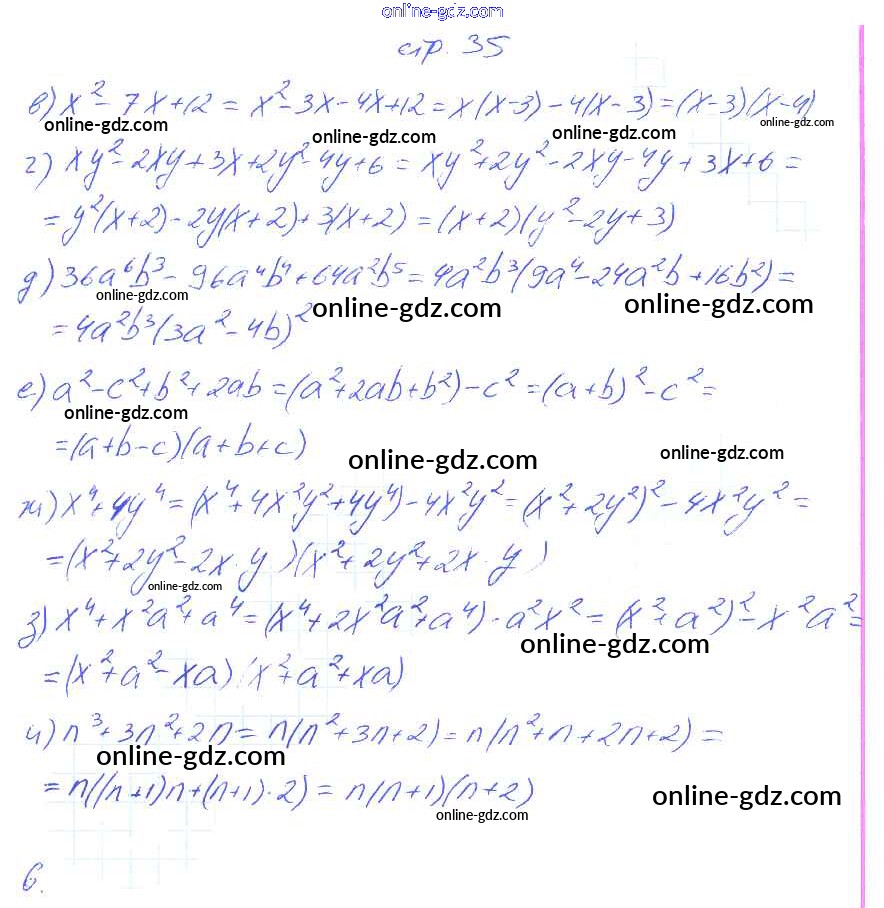 online-gdz.com
стр. 35
в) x² - 7x + 12 = x² - 3x - 4x + 12 = x(x-3) - 4(x-3) = (x-3)(x-4)
online-gdz.com online-gdz.com online-gdz.com online-gdz.com
г) xy² - 2xy + 3x + 2y² - 4y + 6 = xy² + 2y² - 2xy - 4y + 3x + 6 =
= y²(x+2) - 2y(x+2) + 3(x+2) = (x+2)(y² - 2y + 3)
д) 36a⁶b³ - 96a⁴b⁴ + 64a²b⁵ = 4a²b³(9a⁴ - 24a²b + 16b²) =
online-gdz.com online-gdz.com online-gdz.com
= 4a²b³(3a² - 4b)²
е) a² - c² + b² + 2ab = (a² + 2ab + b²) - c² = (a+b)² - c² =
online-gdz.com
= (a+b-c)(a+b+c)
online-gdz.com online-gdz.com
ж) x⁴ + 4y⁴ = (x⁴ + 4x²y² + 4y⁴) - 4x²y² = (x² + 2y²)² - 4x²y² =
= (x² + 2y² - 2x·y)(x² + 2y² + 2x·y)
online-gdz.com
з) x⁴ + x²a² + a⁴ = (x⁴ + 2x²a² + a⁴) - a²x² = (x² + a²)² - x²a² =
online-gdz.com
= (x² + a² - xa)(x² + a² + xa)
и) n³ + 3n² + 2n = n(n² + 3n + 2) = n(n² + n + 2n + 2) =
online-gdz.com
= n((n+1)n + (n+1)·2) = n(n+1)(n+2)
online-gdz.com online-gdz.com
6.